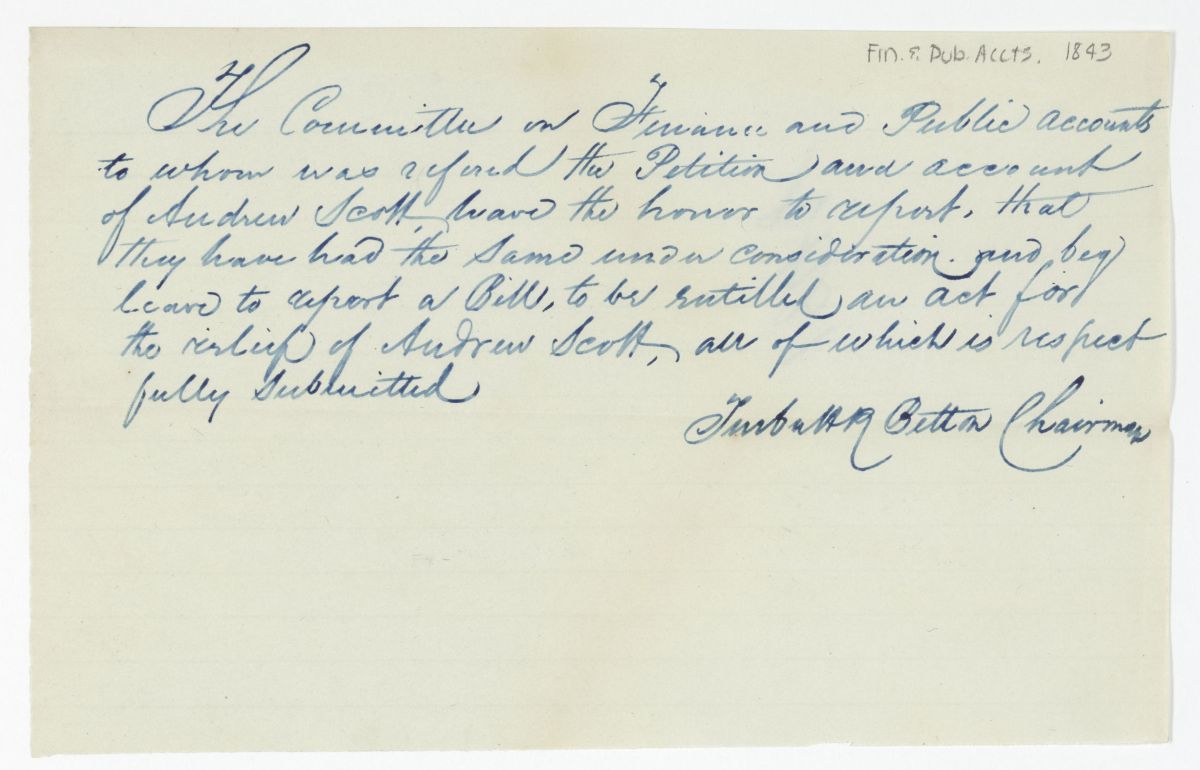 Fin. & Pub. Accts. 1843
The Committee on Finance and Public accounts
to whom was refered the Petition and account
of Andrew Scott, have the honor to report, that
they have had the same under consideration. and beg
leave to report a Bill, to be entilled an act for
the relief of Andrew Scott, all of which is respect
fully submitted
Turbutt R Betton Chairman